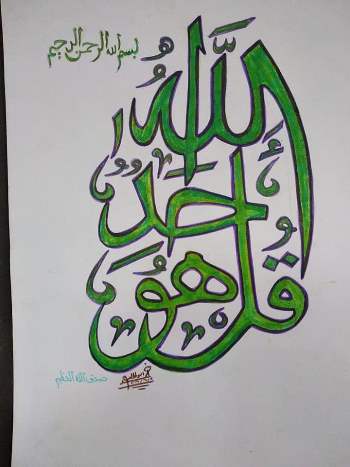 بسم الله الرحمن الرحيم
قل هو الله أحد
صدق الله العظيم